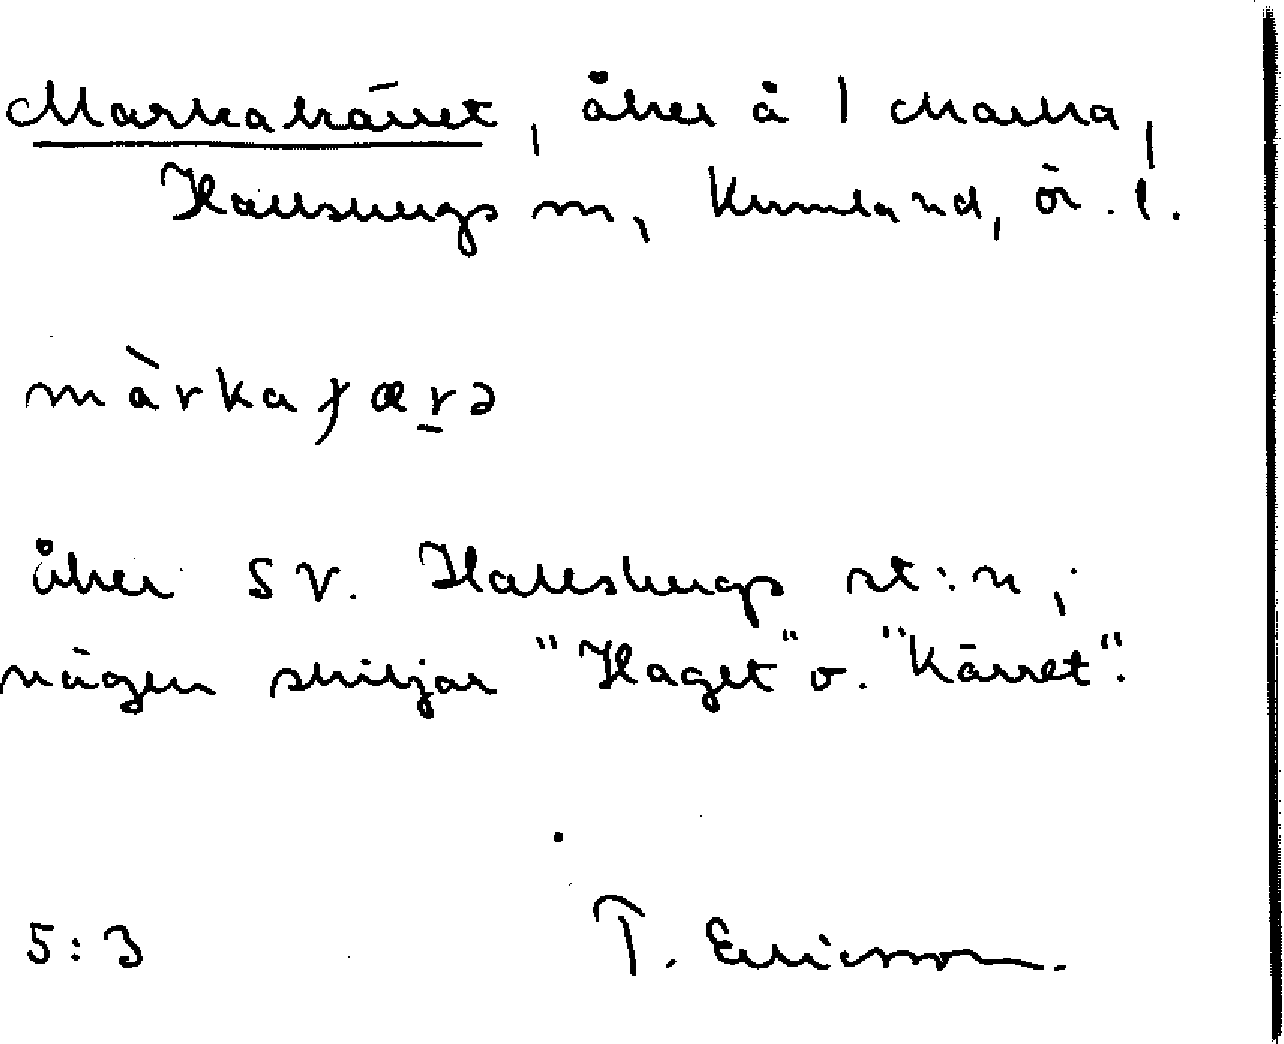 Markakärret, åker å 1 Marka,
Hallsbergs sn, Kumla hd, ör. l.
màrkaʃær̲ə
åker SV. Hallsbergs st:n;
någen skiljer "Haget" o. "Kärret".
5:3 T. Ericsson.